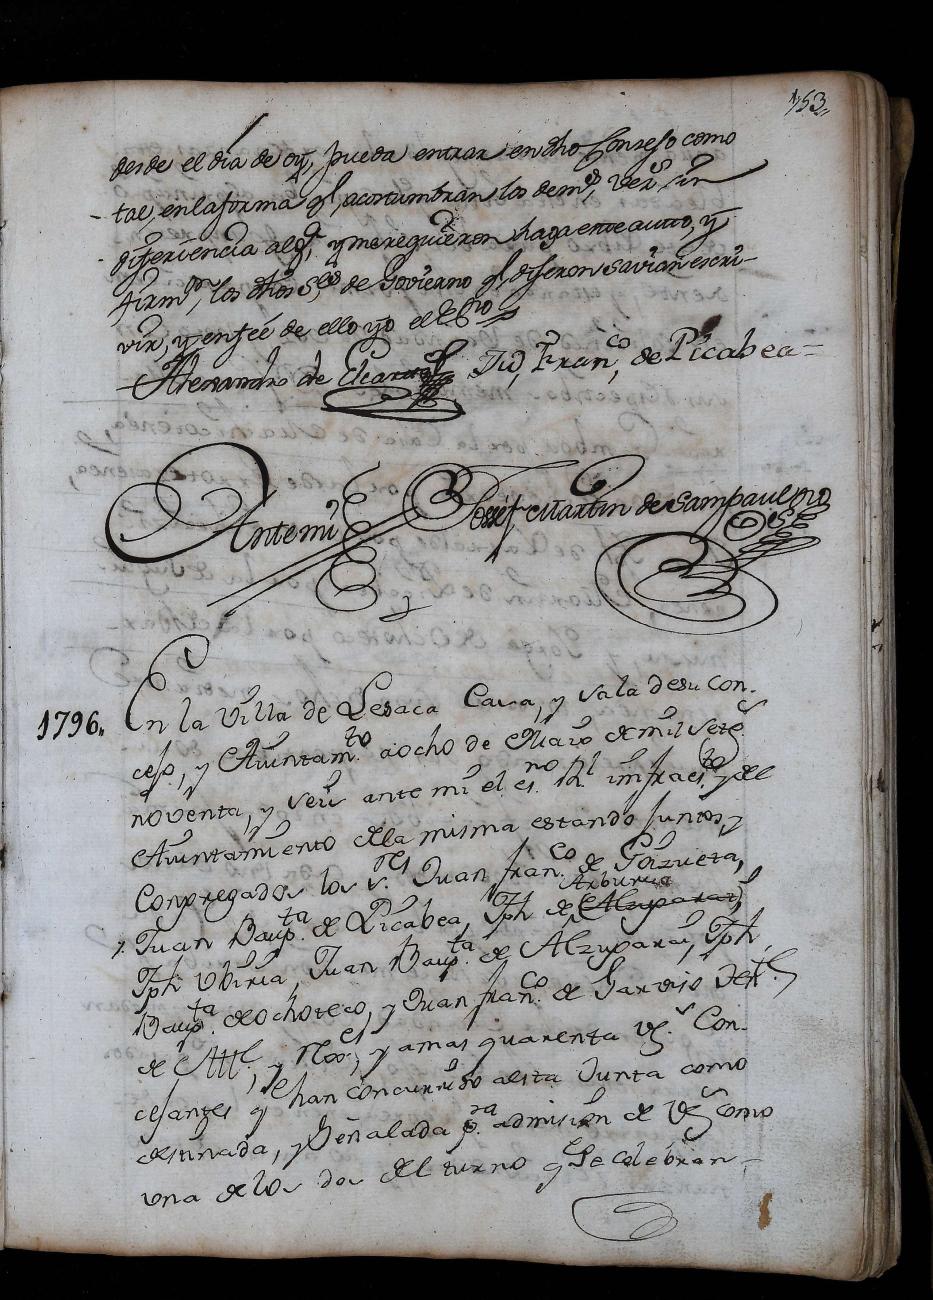 153
desde el dia de oy, pueda entrar en dho Consejo como
tal, en la forma q.e acostumbran los dem.s vez.s sin
diferiencia alg.a, y me requirieron haga ente autto, y
firm.on los dhos S.res de Govierno q.e dijeron savian escri-
vir, y en feé de ello yo el Ess.no
Alexandro de Ju, Fran.co, de Picabea
Antemi Josef Martin de Sampaul esno
1796. En la Villa de Lesaca Casa, y sala de su con-
cejo, y Aiuntam.to a ocho de Maio de mil Sete.s
noventa, y seis ante mi el es.no R.l infraes.to y del
Aiuntamiento de la misma estando juntos, y
Congregados los s.res Juan fran.co de Goizueta,
Juan Baup.ta de Picabea, Jph de Arburua
Jph Ubiria, Juan Baup.ta de Alzugarai, Jph
Baup.ta de ochoteco, y Juan fran.co de
de y amas quarenta vs.s Con-
cejantes q.e han concurrido a esta Junta como
destinada, y Señalada p.ra admision de vs.s como
una de las dos del turno q.e se celebran